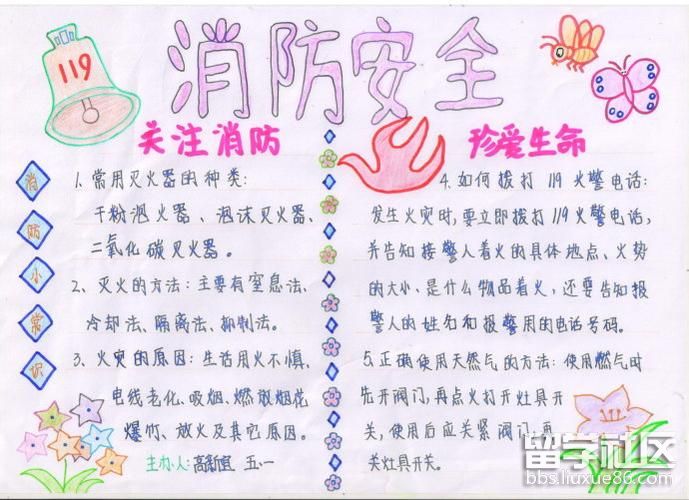 119
消防安全
关注消防
珍爱生命
消防小常识
1、常用灭火器的种类:
干粉泡火器、泡沫灭火器、
二氧化碳灭火器。
2、灭火的方法:主要有窒息法、
冷却法、隔离法、抑制法。
3、火灾的原因:生活用火不慎、
电线老化、吸烟、燃放烟花
爆竹、放火及其它原因。
主办人: 五.一
4.如何拨打119火警电话:
发生火灾时,要立即拨打119火警电话,
并告知接警人着火的具体地点、火势
的大小、是什么物品着火,还要告知报
警人的姓名和报警用的电话号码。
5.正确使用天然气的方法:使用燃气时
先开阀门,再点火打开灶具开
关,使用后应关紧阀门,再
关灶具开关。
留学社区
bbs.liuxue86.com